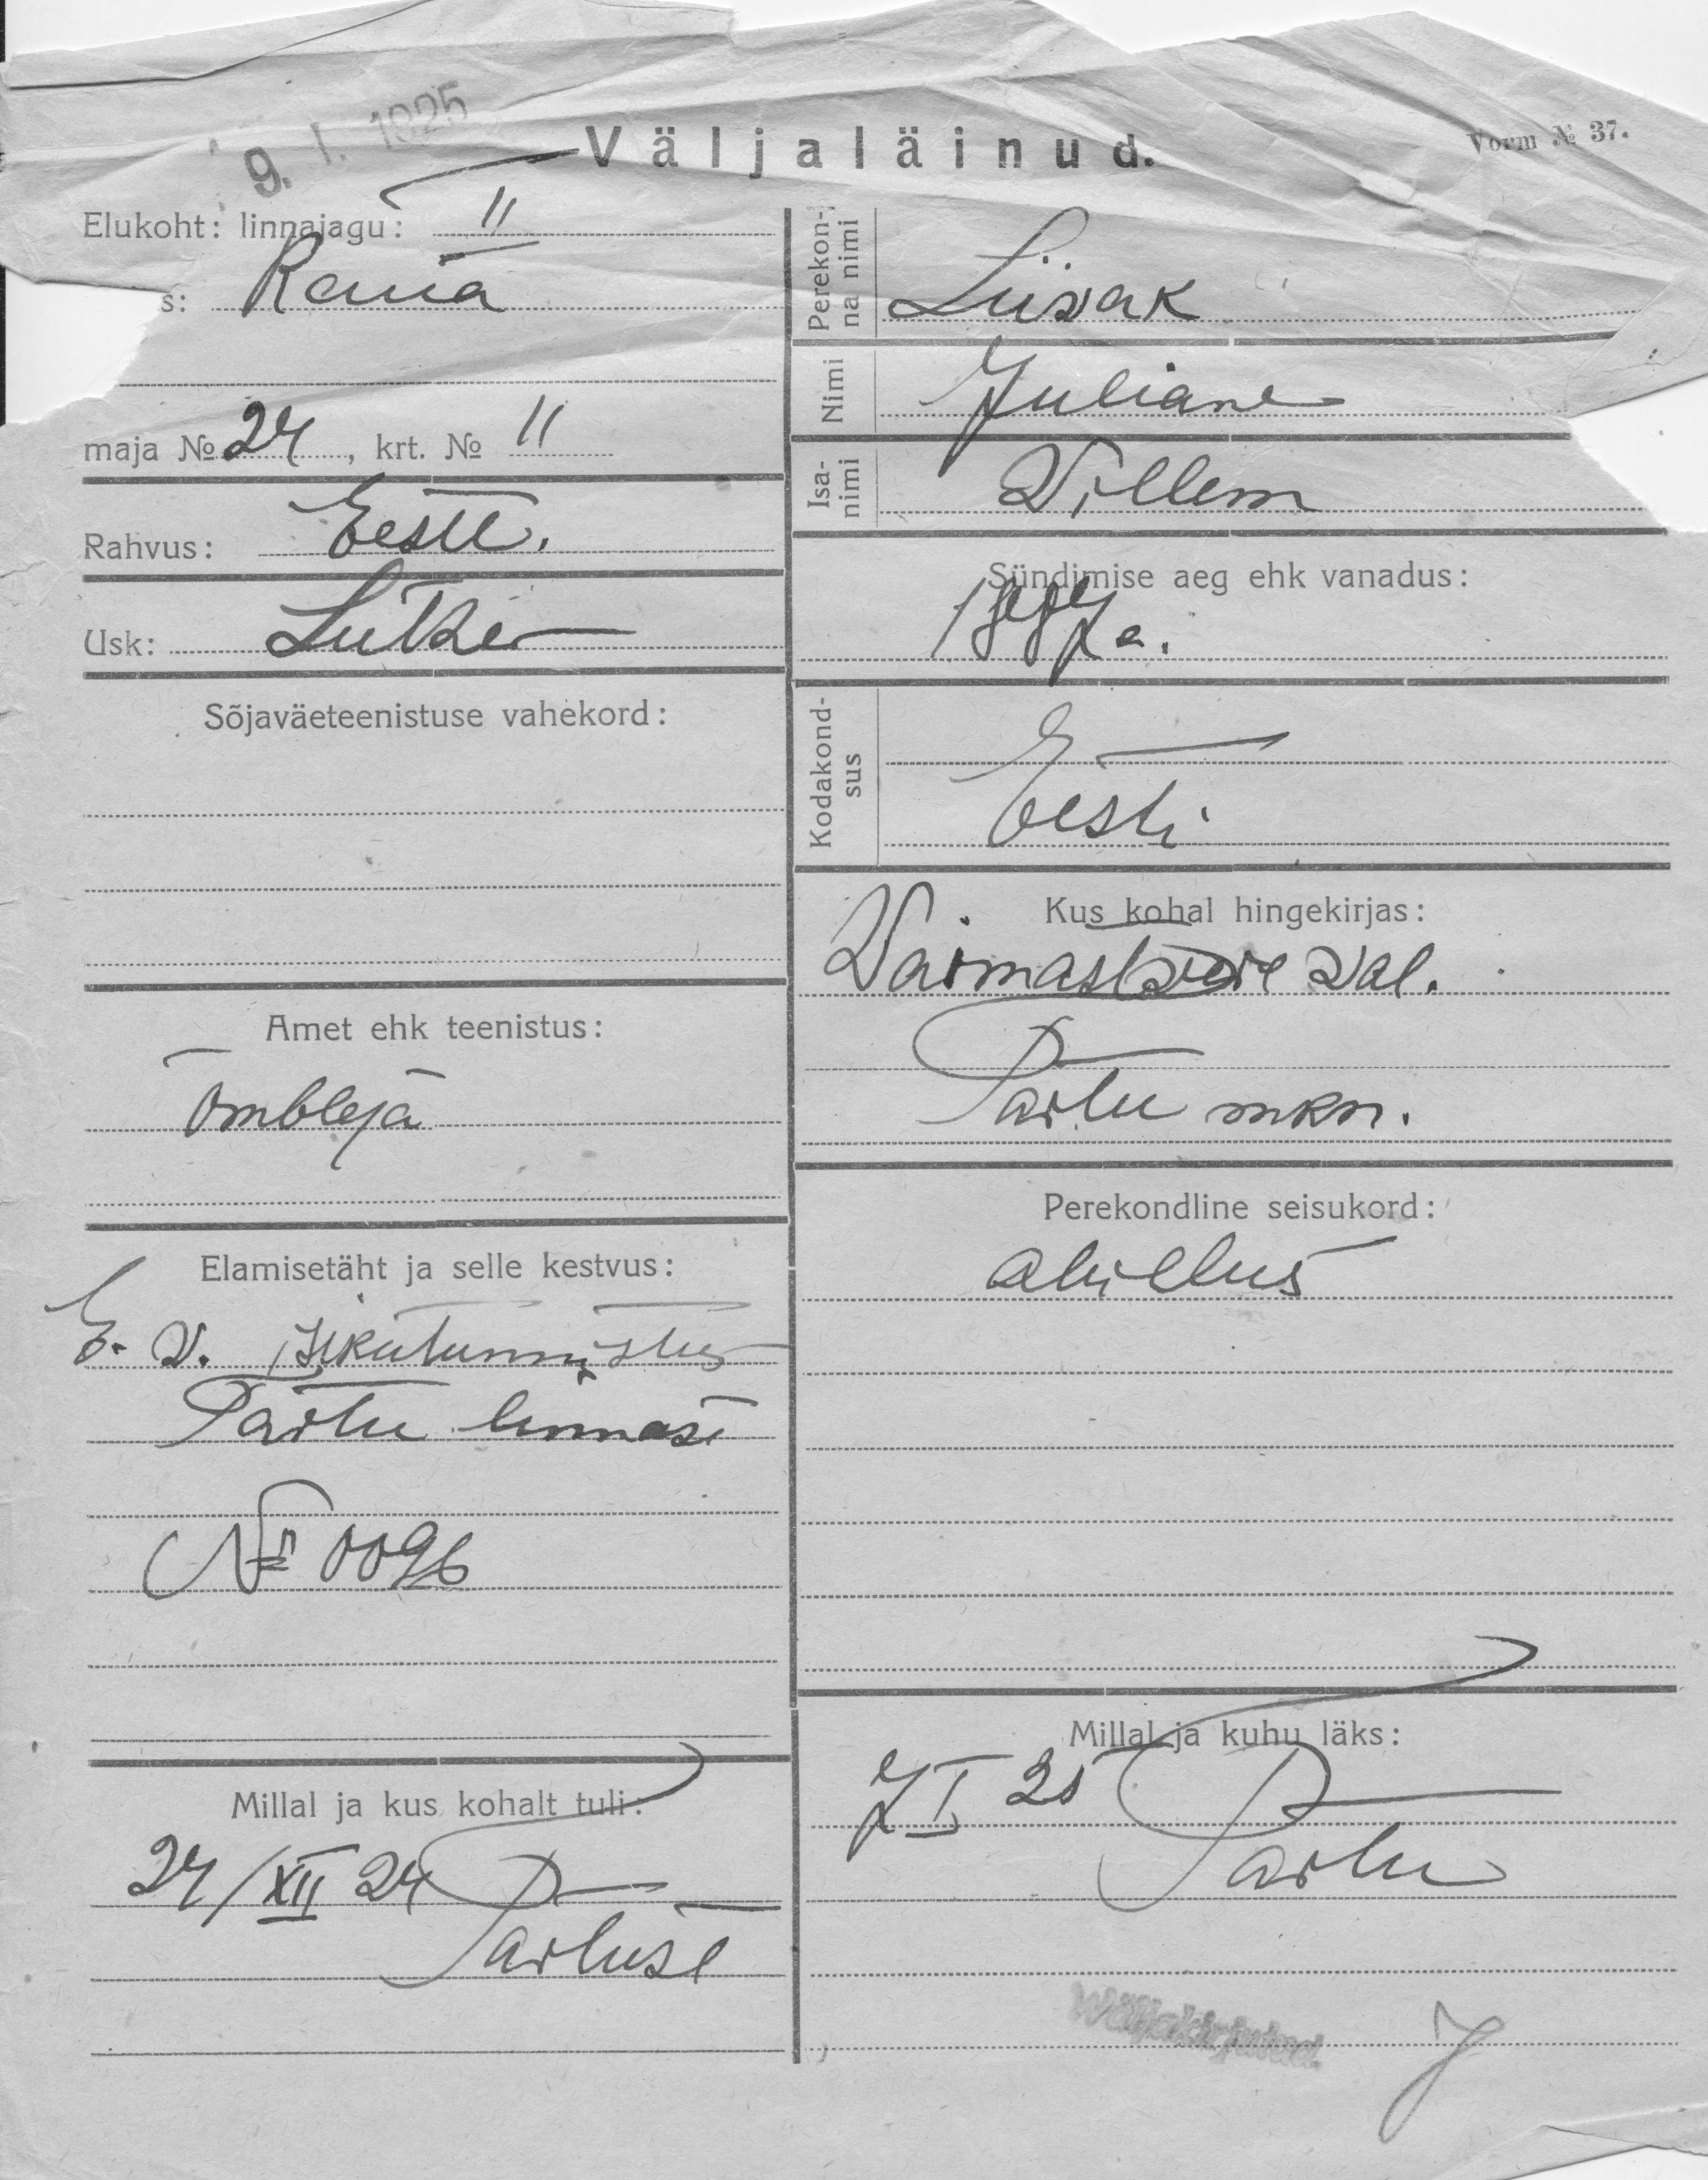 9. I. 1925
Väljaläinud.
Vorm № 37.
Elukoht: linnajagu: II
s: Raua
maja № 24, krt. № 11
Rahvus: Eesti.
Usk: Luther
Sõjaväeteenistuse vahekord:
Amet ehk teenistus:
Õmbleja
Elamisetäht ja selle kestvus:
E. V. Isikutunnistus
Tartu linnast
№ 0096
Millal ja kus kohalt tuli:
24/XII 24
Tartust
Perekon-
na nimi
Liivak
Nimi
Juliane
Isa-
nimi
Villem
Sündimise aeg ehk vanadus:
Kodakond-
sus
Eesti
Kus kohal hingekirjas:
Vaimastvere Val.
Tartu mkn.
Perekondline seisukord:
abielus
Millal ja kuhu läks:
7 I 25
Tartu
Wäljakirjutud